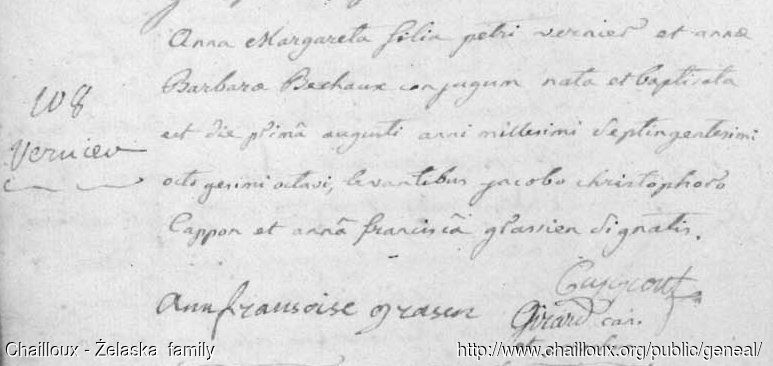 108
Vernier
Anna Margareta filia petri vernier et annæ
Barbaræ Bexhaux conjugum nata et baptisata
est die primâ augusti anni millesimi septingentesimi
octogesimi octavi, levantibus jacobo christophoro
Cappon et annâ franciscâ grassien signatis.
Ann fransoise grasen
Girard
Chailloux - Żelaska family
http://www.chailloux.org/public/geneal/